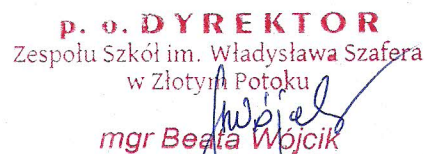 p. o. DYREKTOR
Zespołu Szkół im. Władysława Szafera
w Złotym Potoku
mgr Beata Wójcik